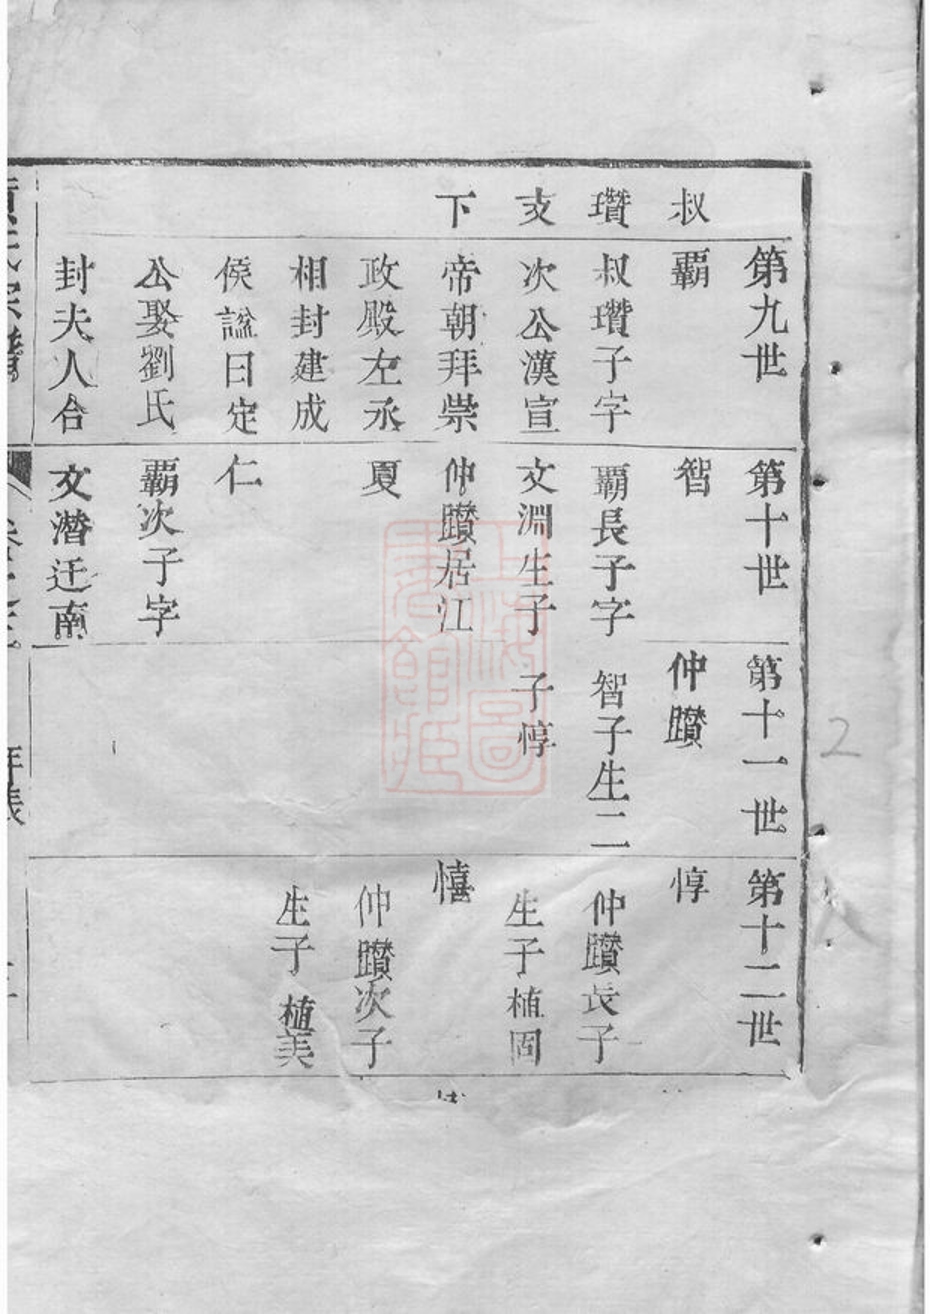 叔
瓚
支
下
第九世
霸
叔瓚子字
次公漢宣
帝朝拜崇
政殿左丞
相封建成
侯諡曰定
公娶劉氏
封夫人合
第十世
智
霸長子字
文淵生子
仲躦居江
夏
仁
霸次子字
文潛迁南
第十一世
仲躦
智子生二
子惇
第十二世
惇
仲躦長子
生子植固
憘
仲躦次子
生子植美
年表
2